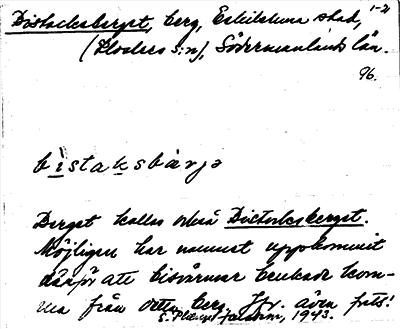 Bistocksberget, berg, Eskilstuna stad, 1-2
(Klosters s:n), Södermanlands län.
96.
bistaksbärjə
Berget kallas också Bistocksberget.
Möjligen har namnet uppkommit
därför att bisvärmar brukade kom-
ma från detta berg. Jfr. även foto!
S. Jansson, 1943.